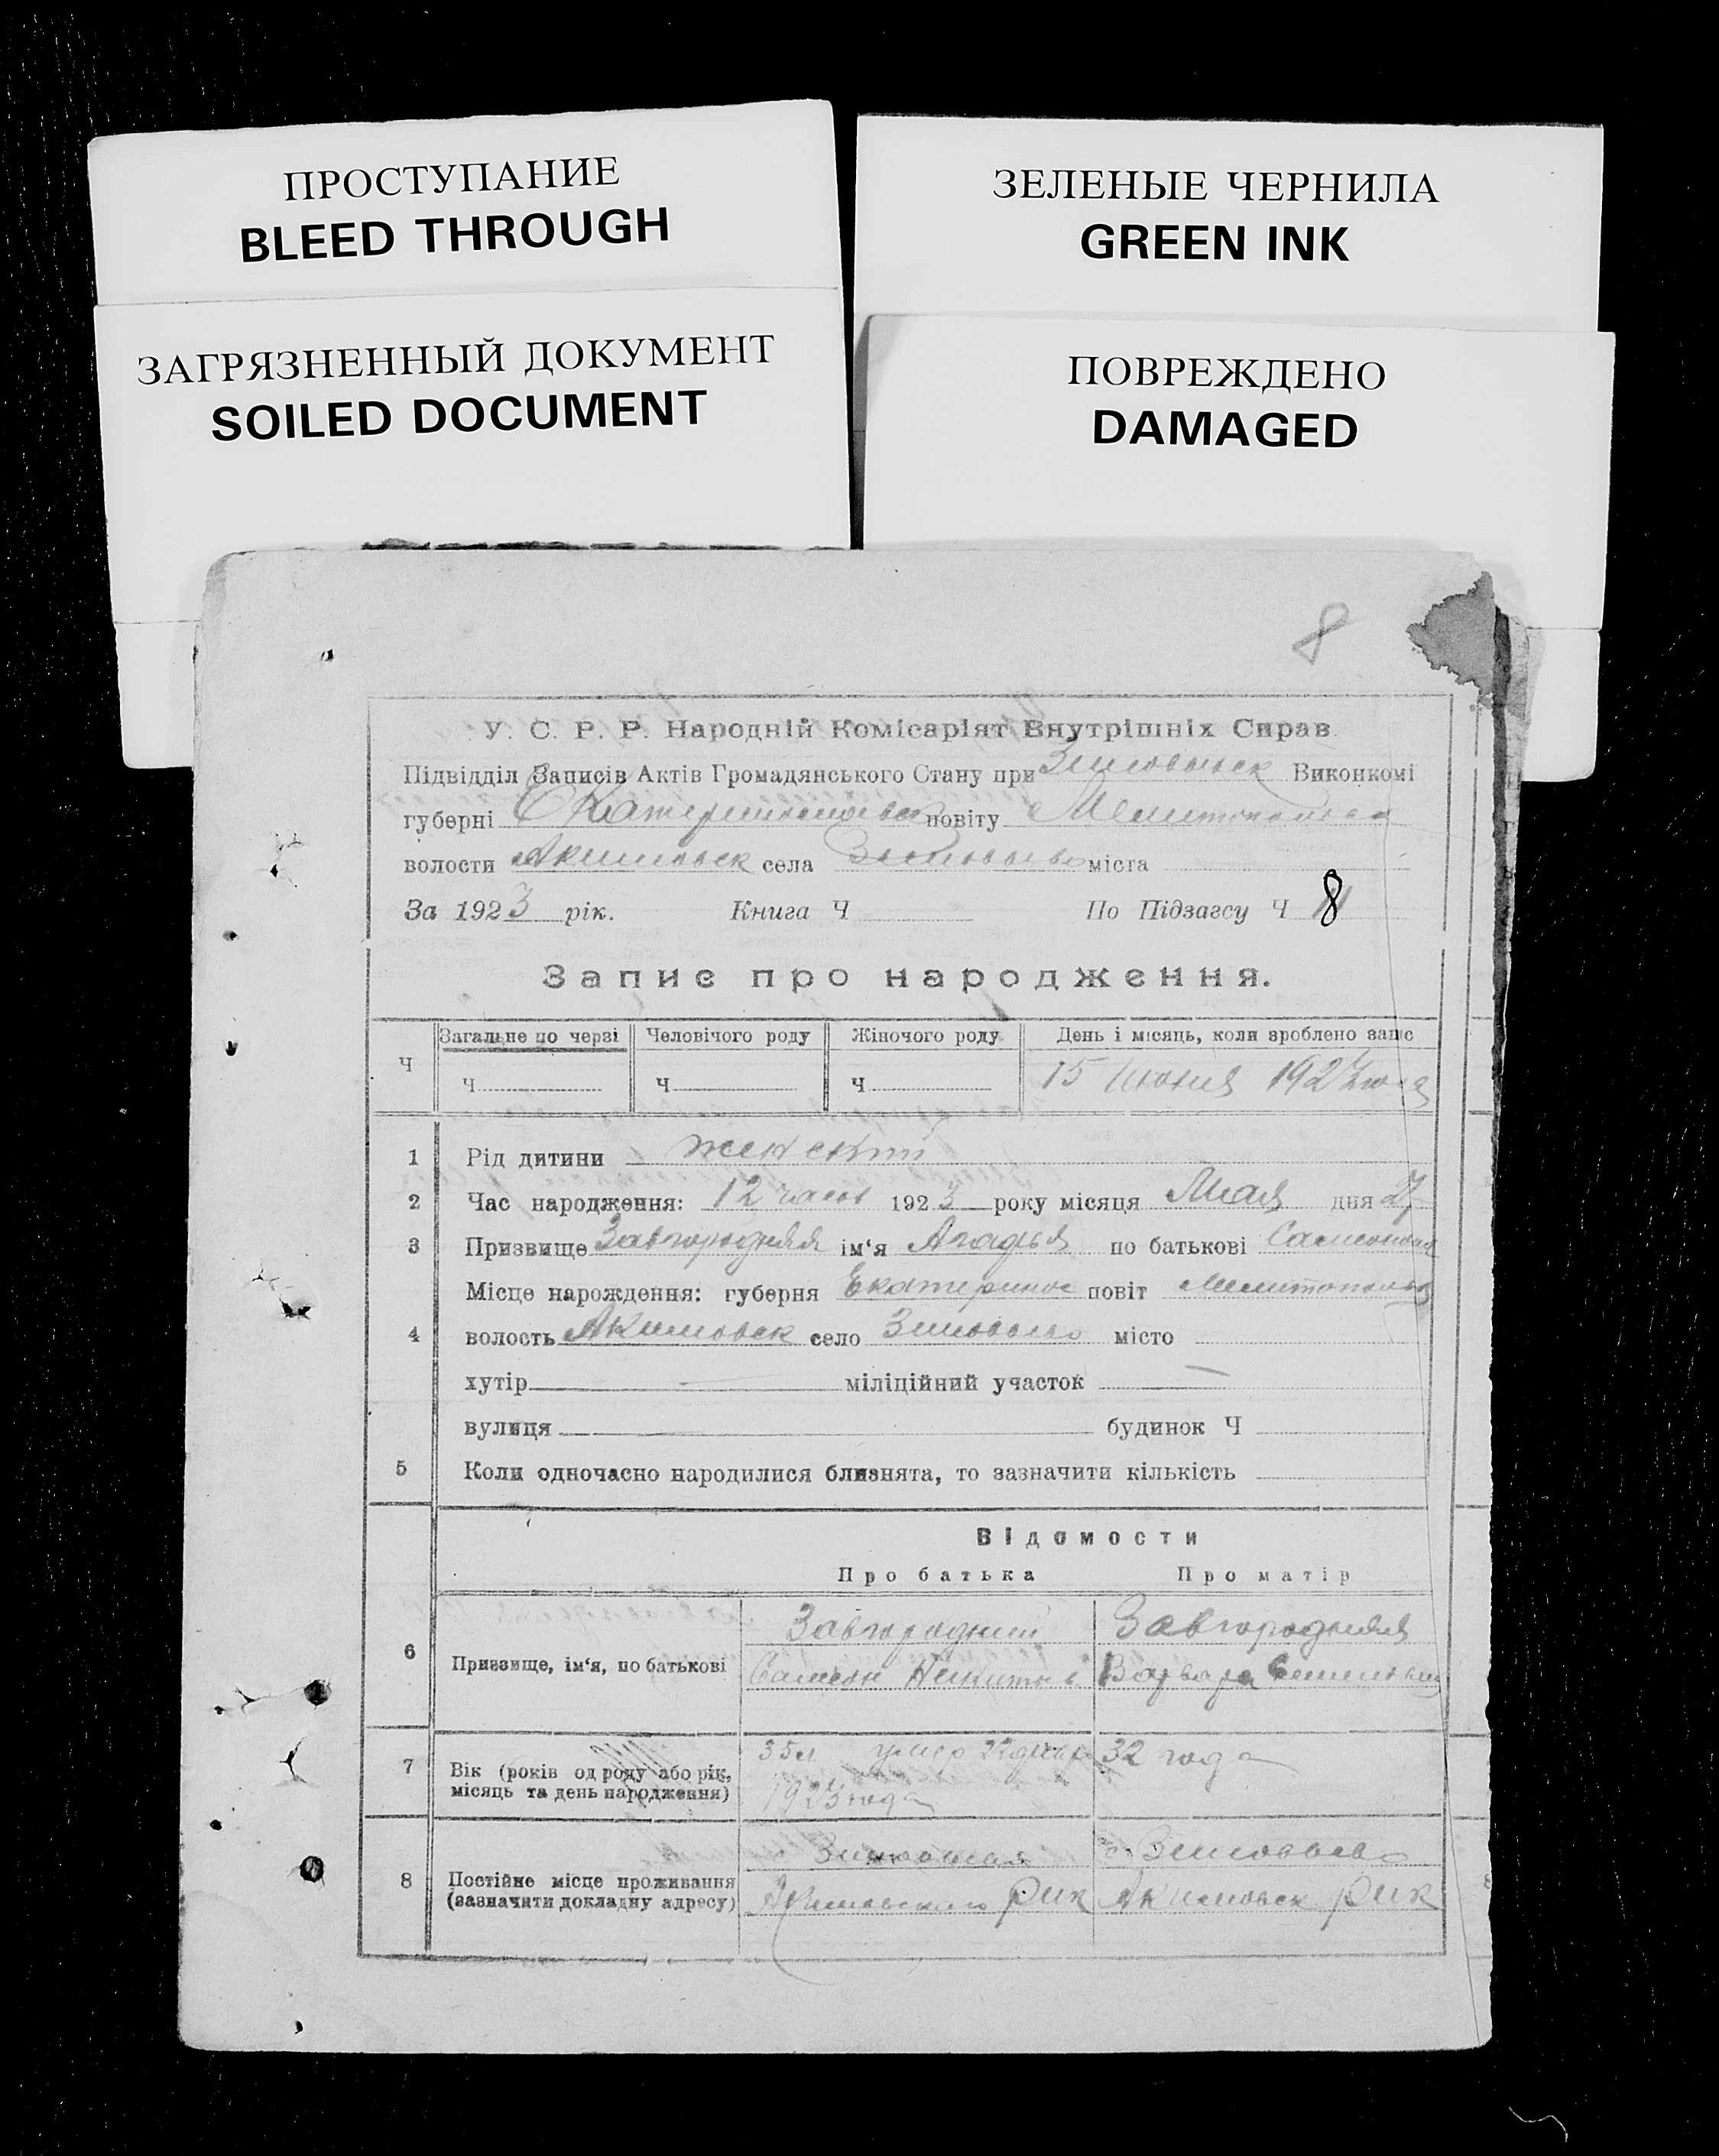 ПРОСТУПАНИЕ
BLEED THROUGH
ЗЕЛЕНЫЕ ЧЕРНИЛА
GREEN INK
ЗАГРЯЗНЕННЫЙ ДОКУМЕНТ
SOILED DOCUMENT
ПОВРЕЖДЕНО
DAMAGED
8
У. С. Р. Р. Народній Комісаріят Внутрішніх Справ
Підвідділ Записів Актів Громадянського Стану при Виконкомі
губерні повіту
волости Акимовск села міста
За 1923 рік. Книга Ч По Підзагсу Ч 8
Запис про народження.
Ч Загальне по черзі Человічого роду Жіночого роду День і місяць, коли зроблено запис
Ч Ч Ч 15 Июня
1 Рід дитини женский
2 Час народження: 12 часов 1923 року місяця Мая дня 27
3 Призвище Завгородняя ім‘я Агафья по батькові
Місце нарождення: губерня Екатеринос повіт
4 волость Акимовск село місто
хутір міліційний участок
вулиця будинок Ч
5 Коли одночасно народилися близнята, то зазначити кількість
Відомости
Про батька Про матір
6 Призвище, ім‘я, по батькові
Завгородний Завгородняя
Самсон Никитов Варвара
7 Вік (років од роду або рік, місяць та день народження)
35 л умер 22 32 года
1923 года
8 Постійне місце проживання (зазначити докладну адресу)
Акимовского Рик Акимовск Рик